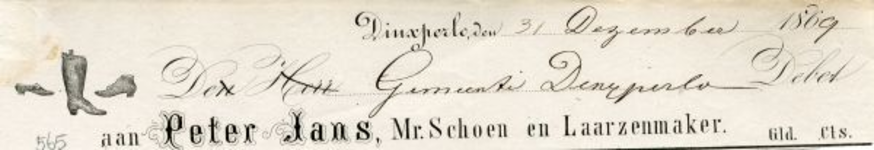 Dinxperlo, den 31 Dezember 1869
Den Heer Gemeente Dinxperlo Debet
565 aan Peter Jans, Mr. Schoen en Laarzenmaker. Gld. Cts.